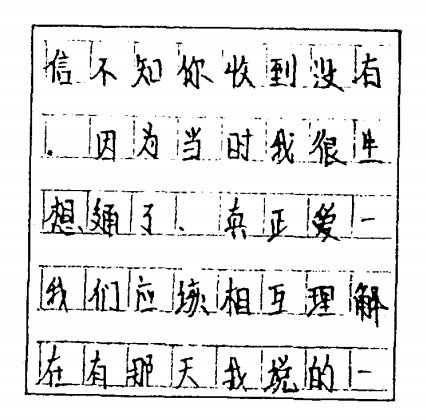 信不知你收到没有
．因为当时我很生
想通了．真正爱一
我们应该相互理解
在有那天我说的一